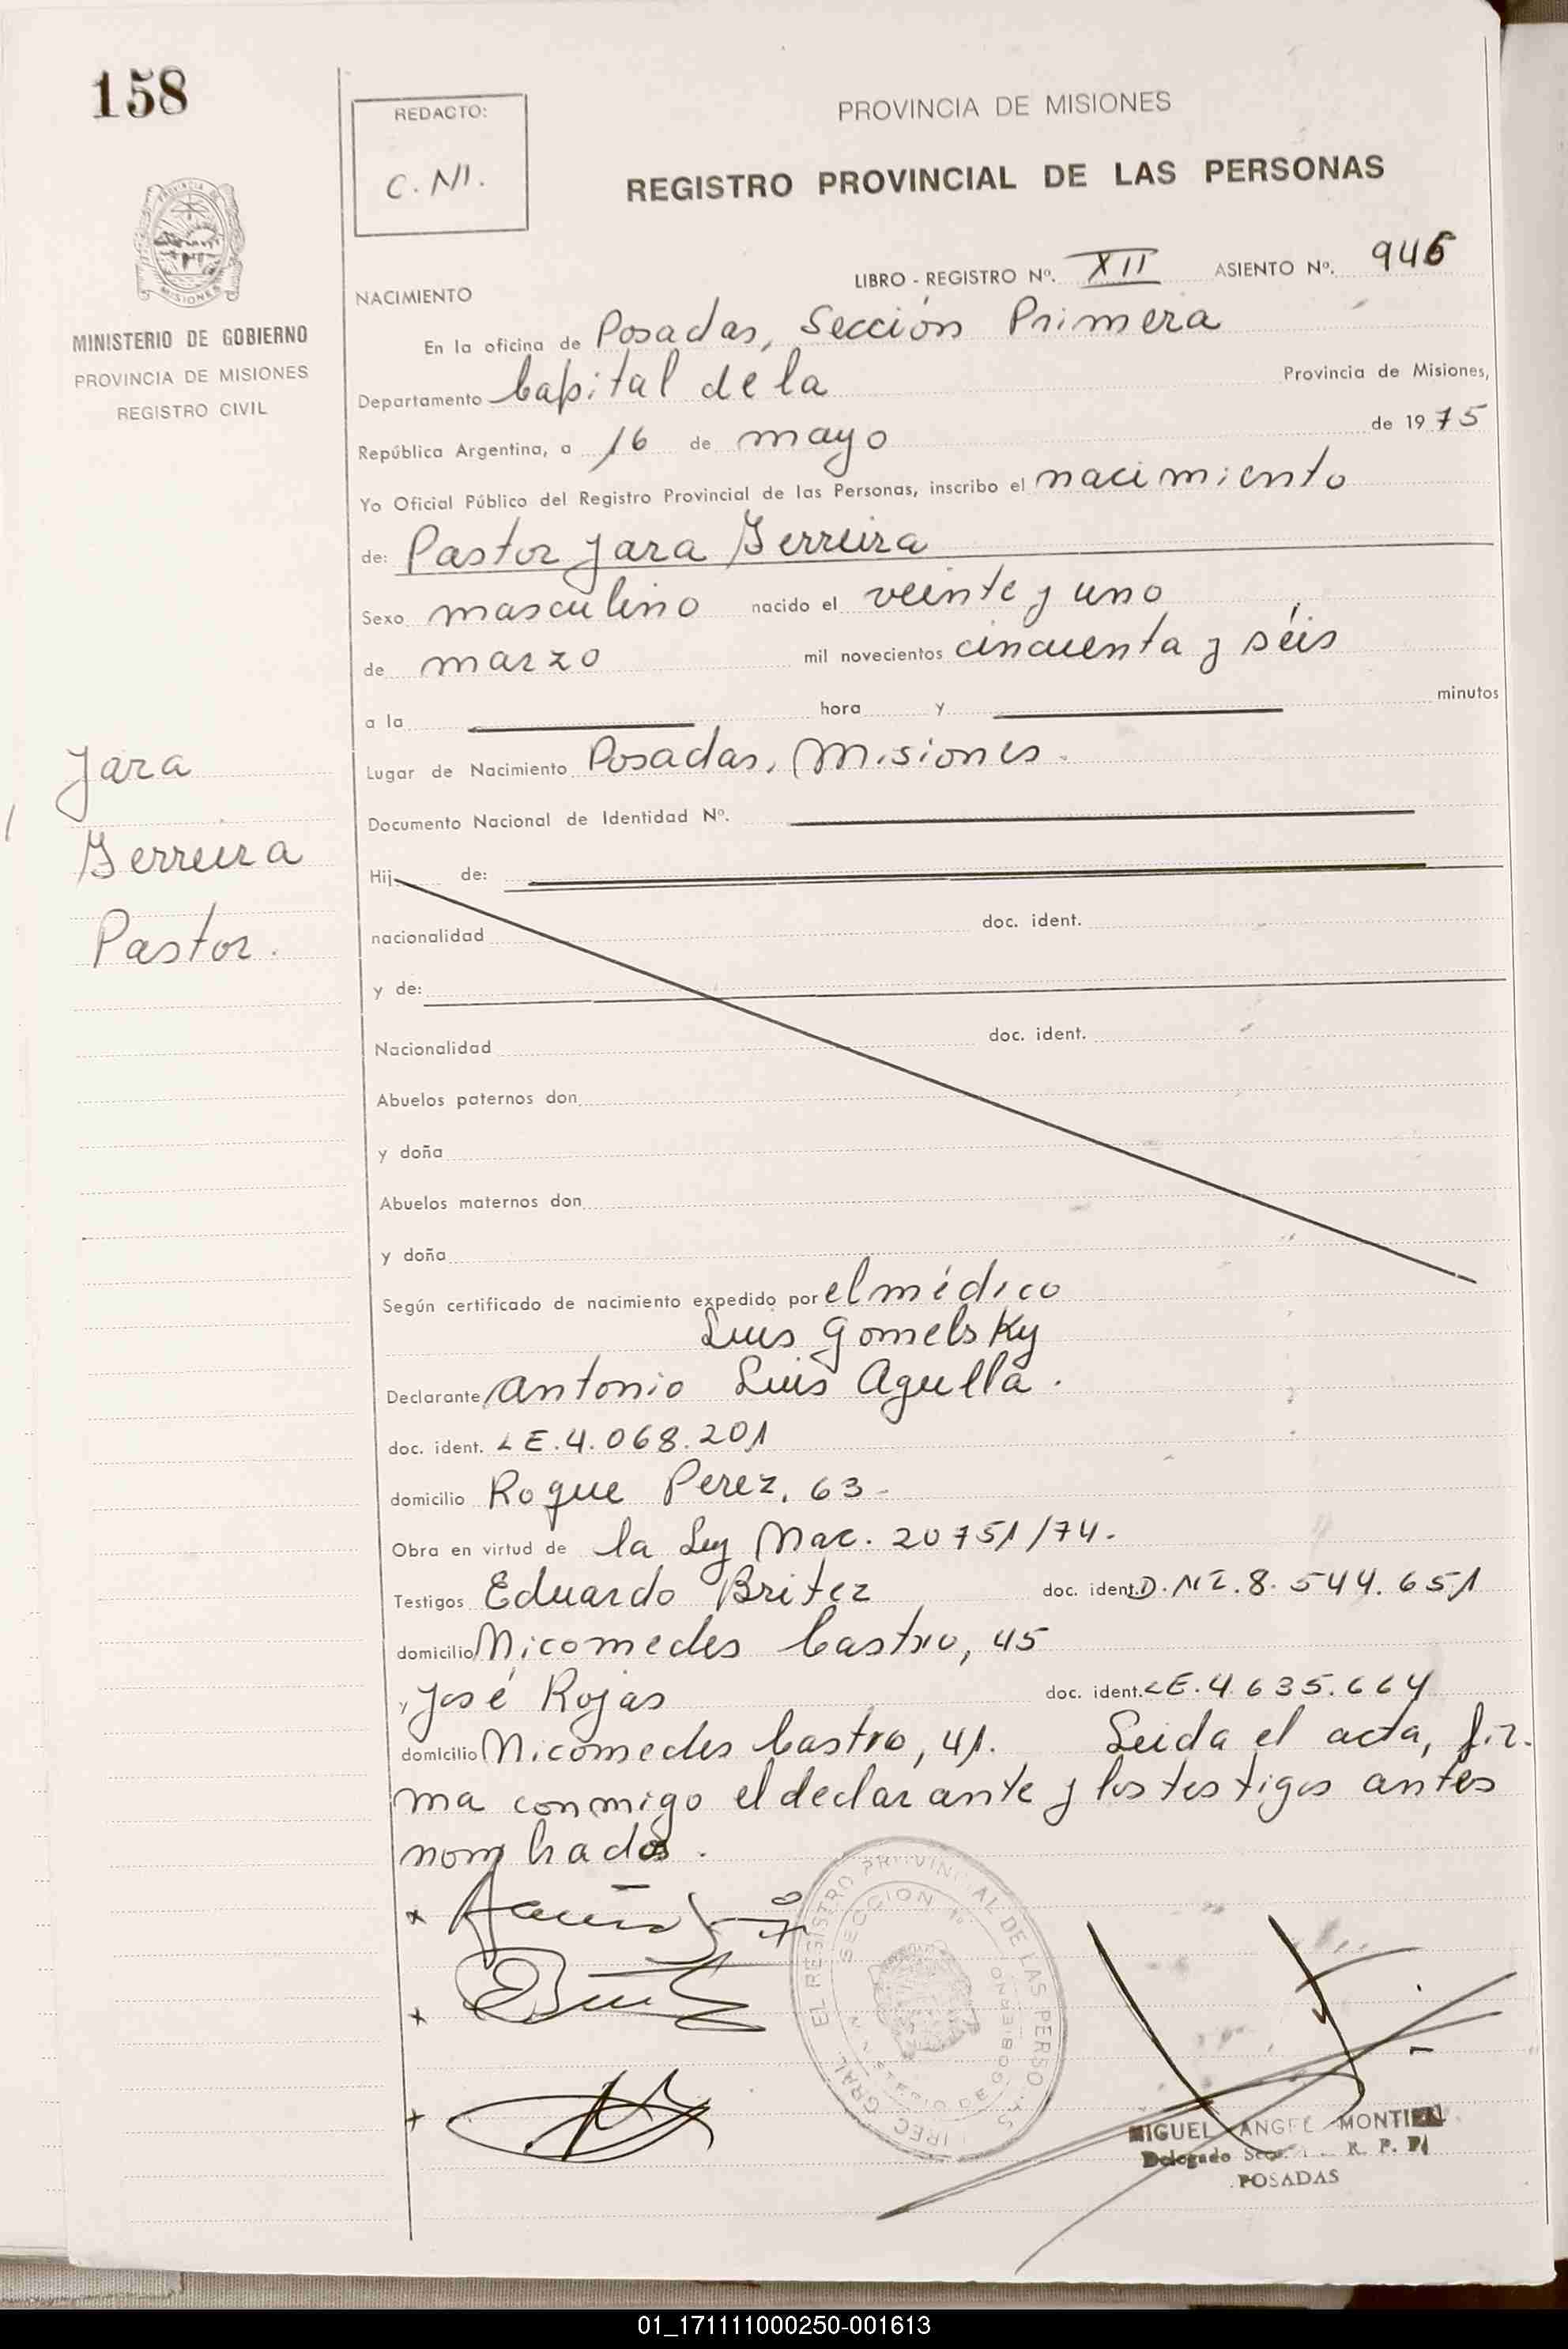 158
REDACTO:
C.NI.
PROVINCIA DE MISIONES
REGISTRO PROVINCIAL DE LAS PERSONAS
LIBRO - REGISTRO Nº. XII ASIENTO Nº. 946
MINISTERIO DE GOBIERNO
PROVINCIA DE MISIONES
REGISTRO CIVIL
NACIMIENTO
En la oficina de Posadas, Sección Primera
Departamento Capital de la Provincia de Misiones,
República Argentina, a 16 de mayo de 1975
Yo Oficial Público del Registro Provincial de las Personas, inscribo el nacimiento
de: Pastor Jara Ferreira
Sexo masculino nacido el veinte y uno
de marzo mil novecientos cincuenta y séis
a la hora y minutos
Lugar de Nacimiento Posadas, Misiones.
Jara
Ferreira
Pastor.
Documento Nacional de Identidad Nº.
Hij de:
nacionalidad doc. ident.
y de:
Nacionalidad doc. ident.
Abuelos paternos don
y doña
Abuelos maternos don
y doña
Según certificado de nacimiento expedido por el médico
Luis Gomelsky
Declarante Antonio Luis Agulla.
doc. ident. LE.4.068.201
domicilio Roque Perez, 63-
Obra en virtud de la Ley Nac. 20751/74.
Testigos Eduardo Britez doc. ident. D.NI.8.544.651
domicilio Nicomedes Castro, 45
y José Rojas doc. ident. LE.4.635.664
domicilio Nicomedes Castro, 41. Leida el acta, fir-
ma conmigo el declarante y los testigos antes
nombrados.
EL REGISTRO PROVINCIAL DE LAS PERSONAS
SECCION 1º
MINISTERIO DE GOBIERNO
MIGUEL ANGEL MONTIEL
Delegado R. P. P.
POSADAS
01_171111000250-001613